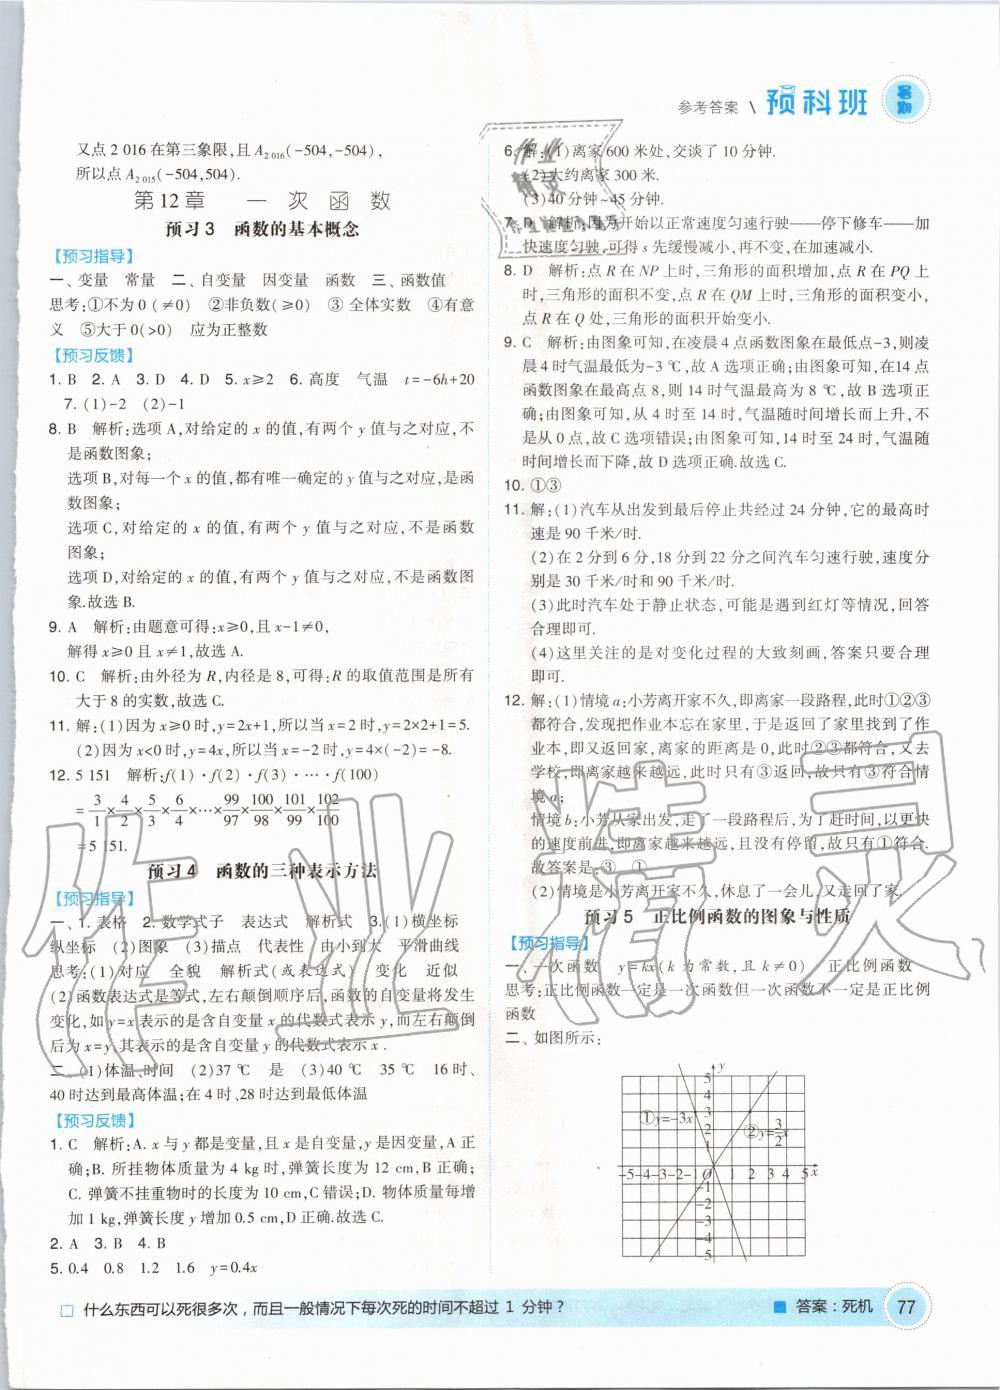 参考答案 \ 预科班 暑期
又点 2 016 在第三象限,且 A₂ ₀₁₆(-504,-504),
所以点 A₂ ₀₁₅(-504,504).
第 12 章 一 次 函 数
预习 3 函数的基本概念
【预习指导】
一、变量 常量 二、自变量 因变量 函数 三、函数值
思考:①不为 0 (≠0) ②非负数(≥0) ③ 全体实数 ④有意
义 ⑤大于 0(>0) 应为正整数
【预习反馈】
1. B 2. A 3. D 4. D 5. x≥2 6. 高度 气温 t=-6h+20
7. (1)-2 (2)-1
8. B 解析:选项 A,对给定的 x 的值,有两个 y 值与之对应,不
是函数图象;
选项 B,对每一个 x 的值,都有唯一确定的 y 值与之对应,是函
数图象;
选项 C,对给定的 x 的值,有两个 y 值与之对应,不是函数
图象;
选项 D,对给定的 x 的值,有两个 y 值与之对应,不是函数图
象.故选 B.
9. A 解析:由题意可得:x≥0,且 x-1≠0,
解得 x≥0 且 x≠1,故选 A.
10. C 解析:由外径为 R,内径是 8,可得:R 的取值范围是所有
大于 8 的实数,故选 C.
11. 解:(1)因为 x≥0 时,y=2x+1,所以当 x=2 时,y=2×2+1=5.
(2)因为 x<0 时,y=4x,所以当 x=-2 时,y=4×(-2)=-8.
12. 5 151 解析:f(1)·f(2)·f(3)·…·f(100)
=3/1×4/2×5/3×6/4×…×99/97×100/98×101/99×102/100
=5 151.
预习 4 函数的三种表示方法
【预习指导】
一、1. 表格 2. 数学式子 表达式 解析式 3.(1)横坐标
纵坐标 (2)图象 (3)描点 代表性 由小到大 平滑曲线
思考:(1)对应 全貌 解析式(或表达式) 变化 近似
(2)函数表达式是等式,左右颠倒顺序后,函数的自变量将发生
变化,如 y=x 表示的是含自变量 x 的代数式表示 y,而左右颠倒
后为 x=y,其表示的是含自变量 y 的代数式表示 x .
二、(1)体温、时间 (2)37 ℃ 是 (3)40 ℃ 35 ℃ 16 时、
40 时达到最高体温;在 4 时、28 时达到最低体温
【预习反馈】
1. C 解析:A. x 与 y 都是变量,且 x 是自变量,y 是因变量,A 正
确;B. 所挂物体质量为 4 kg 时,弹簧长度为 12 cm,B 正确;
C. 弹簧不挂重物时的长度为 10 cm,C 错误;D. 物体质量每增
加 1 kg,弹簧长度 y 增加 0.5 cm,D 正确.故选 C.
2. A 3. B 4. B
5. 0.4 0.8 1.2 1.6 y=0.4x
6. 解:(1)离家 600 米处,交谈了 10 分钟.
(2)大约离家 300 米.
(3)40 分钟~45 分钟.
7. D 解析:因为开始以正常速度匀速行驶——停下修车——加
快速度匀驶,可得 s 先缓慢减小,再不变,在加速减小.
8. D 解析:点 R 在 NP 上时,三角形的面积增加,点 R 在 PQ 上
时,三角形的面积不变,点 R 在 QM 上时,三角形的面积变小,
点 R 在 Q 处,三角形的面积开始变小.
9. C 解析:由图象可知,在凌晨 4 点函数图象在最低点-3,则凌
晨 4 时气温最低为-3 ℃,故 A 选项正确;由图象可知,在14 点
函数图象在最高点 8,则 14 时气温最高为 8 ℃,故 B 选项正
确;由图象可知,从 4 时至 14 时,气温随时间增长而上升,不
是从 0 点,故 C 选项错误;由图象可知,14 时至 24 时,气温随
时间增长而下降,故 D 选项正确.故选 C.
10. ①③
11. 解:(1)汽车从出发到最后停止共经过 24 分钟,它的最高时
速是 90 千米/时.
(2)在 2 分到 6 分,18 分到 22 分之间汽车匀速行驶,速度分
别是 30 千米/时和 90 千米/时.
(3)此时汽车处于静止状态,可能是遇到红灯等情况,回答
合理即可.
(4)这里关注的是对变化过程的大致刻画,答案只要合理
即可.
12. 解:(1)情境 a:小芳离开家不久,即离家一段路程,此时①②③
都符合,发现把作业本忘在家里,于是返回了家里找到了作
业本,即又返回家,离家的距离是 0,此时②③都符合,又去
学校,即离家越来越远,此时只有③返回,故只有③符合情
境 a;
情境 b:小芳从家出发,走了一段路程后,为了赶时间,以更快
的速度前进,即离家越来越远,且没有停留,故只有①符合.
故答案是:③ ①
(2)情境是小芳离开家不久,休息了一会儿,又走回了家.
预习 5 正比例函数的图象与性质
【预习指导】
一、一次函数 y=kx(k 为常数,且 k≠0) 正比例函数
思考:正比例函数一定是一次函数但一次函数不一定是正比例
函数
二、如图所示:
y
5
4
3
①y=-3x
2
②y=3/2x
1
-5-4-3-2-1 O 1 2 3 4 5 x
-1
-2
-3
-4
-5
什么东西可以死很多次,而且一般情况下每次死的时间不超过 1 分钟?
答案:死机
77
作业精灵